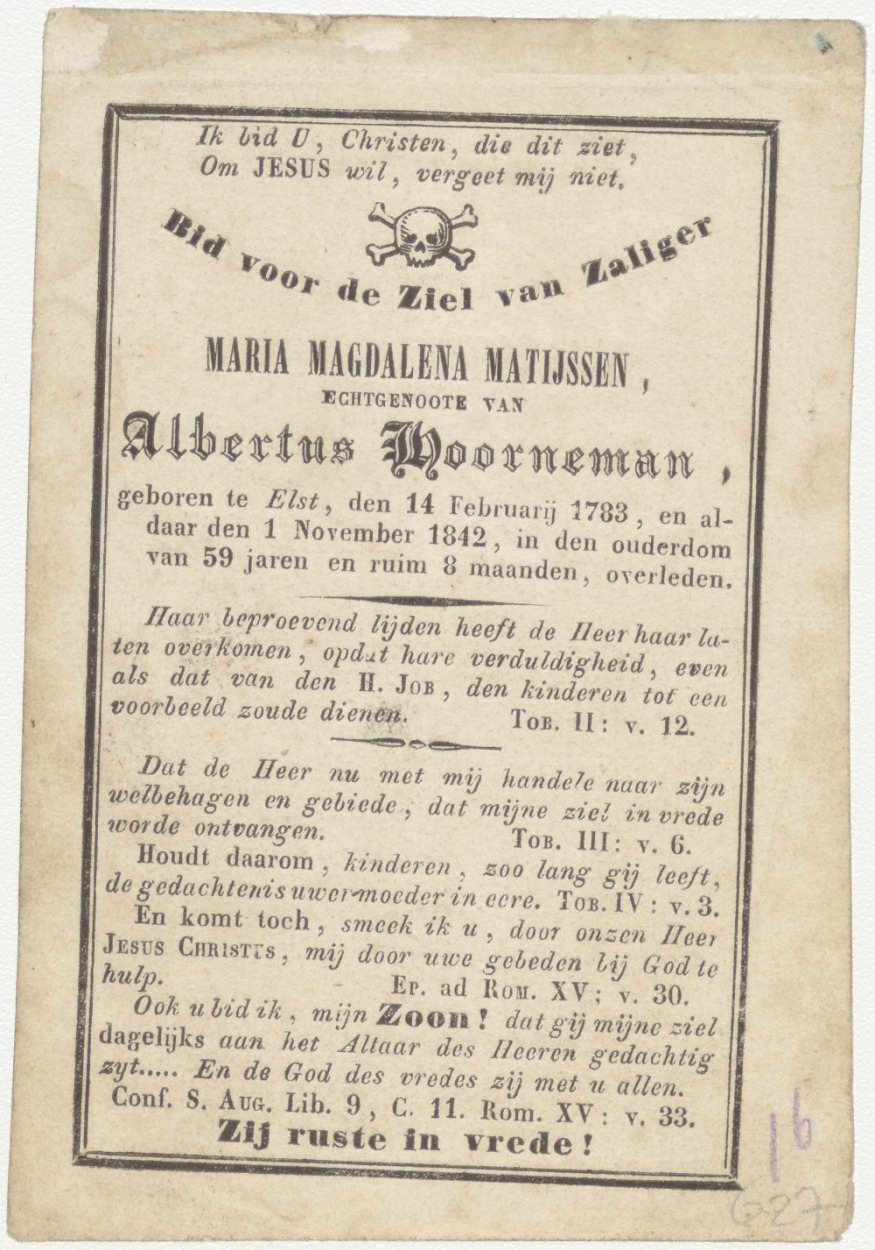 Ik bid U, Christen, die dit ziet,
Om JESUS wil, vergeet mij niet.
Bid voor de Ziel van Zaliger
MARIA MAGDALENA MATIJSSEN,
ECHTGENOOTE VAN
Albertus Hoorneman,
geboren te Elst, den 14 Februarij 1783, en al-
daar den 1 November 1842, in den ouderdom
van 59 jaren en ruim 8 maanden, overleden.
Haar beproevend lijden heeft de Heer haar la-
ten overkomen, opdat hare verduldigheid, even
als dat van den H. JOB, den kinderen tot een
voorbeeld zoude dienen. TOB. II: v. 12.
Dat de Heer nu met mij handele naar zijn
welbehagen en gebiede, dat mijne ziel in vrede
worde ontvangen. TOB. III: v. 6.
Houdt daarom, kinderen, zoo lang gij leeft,
de gedachtenis uwer moeder in eere. TOB. IV: v. 3.
En komt toch, smeek ik u, door onzen Heer
JESUS CHRISTUS, mij door uwe gebeden bij God te
hulp. EP. ad ROM. XV; v. 30.
Ook u bid ik, mijn Zoon! dat gij mijne ziel
dagelijks aan het Altaar des Heeren gedachtig
zyt..... En de God des vredes zij met u allen.
Conf. S. AUG. Lib. 9, C. 11. Rom. XV: v. 33.
Zij ruste in vrede!
16